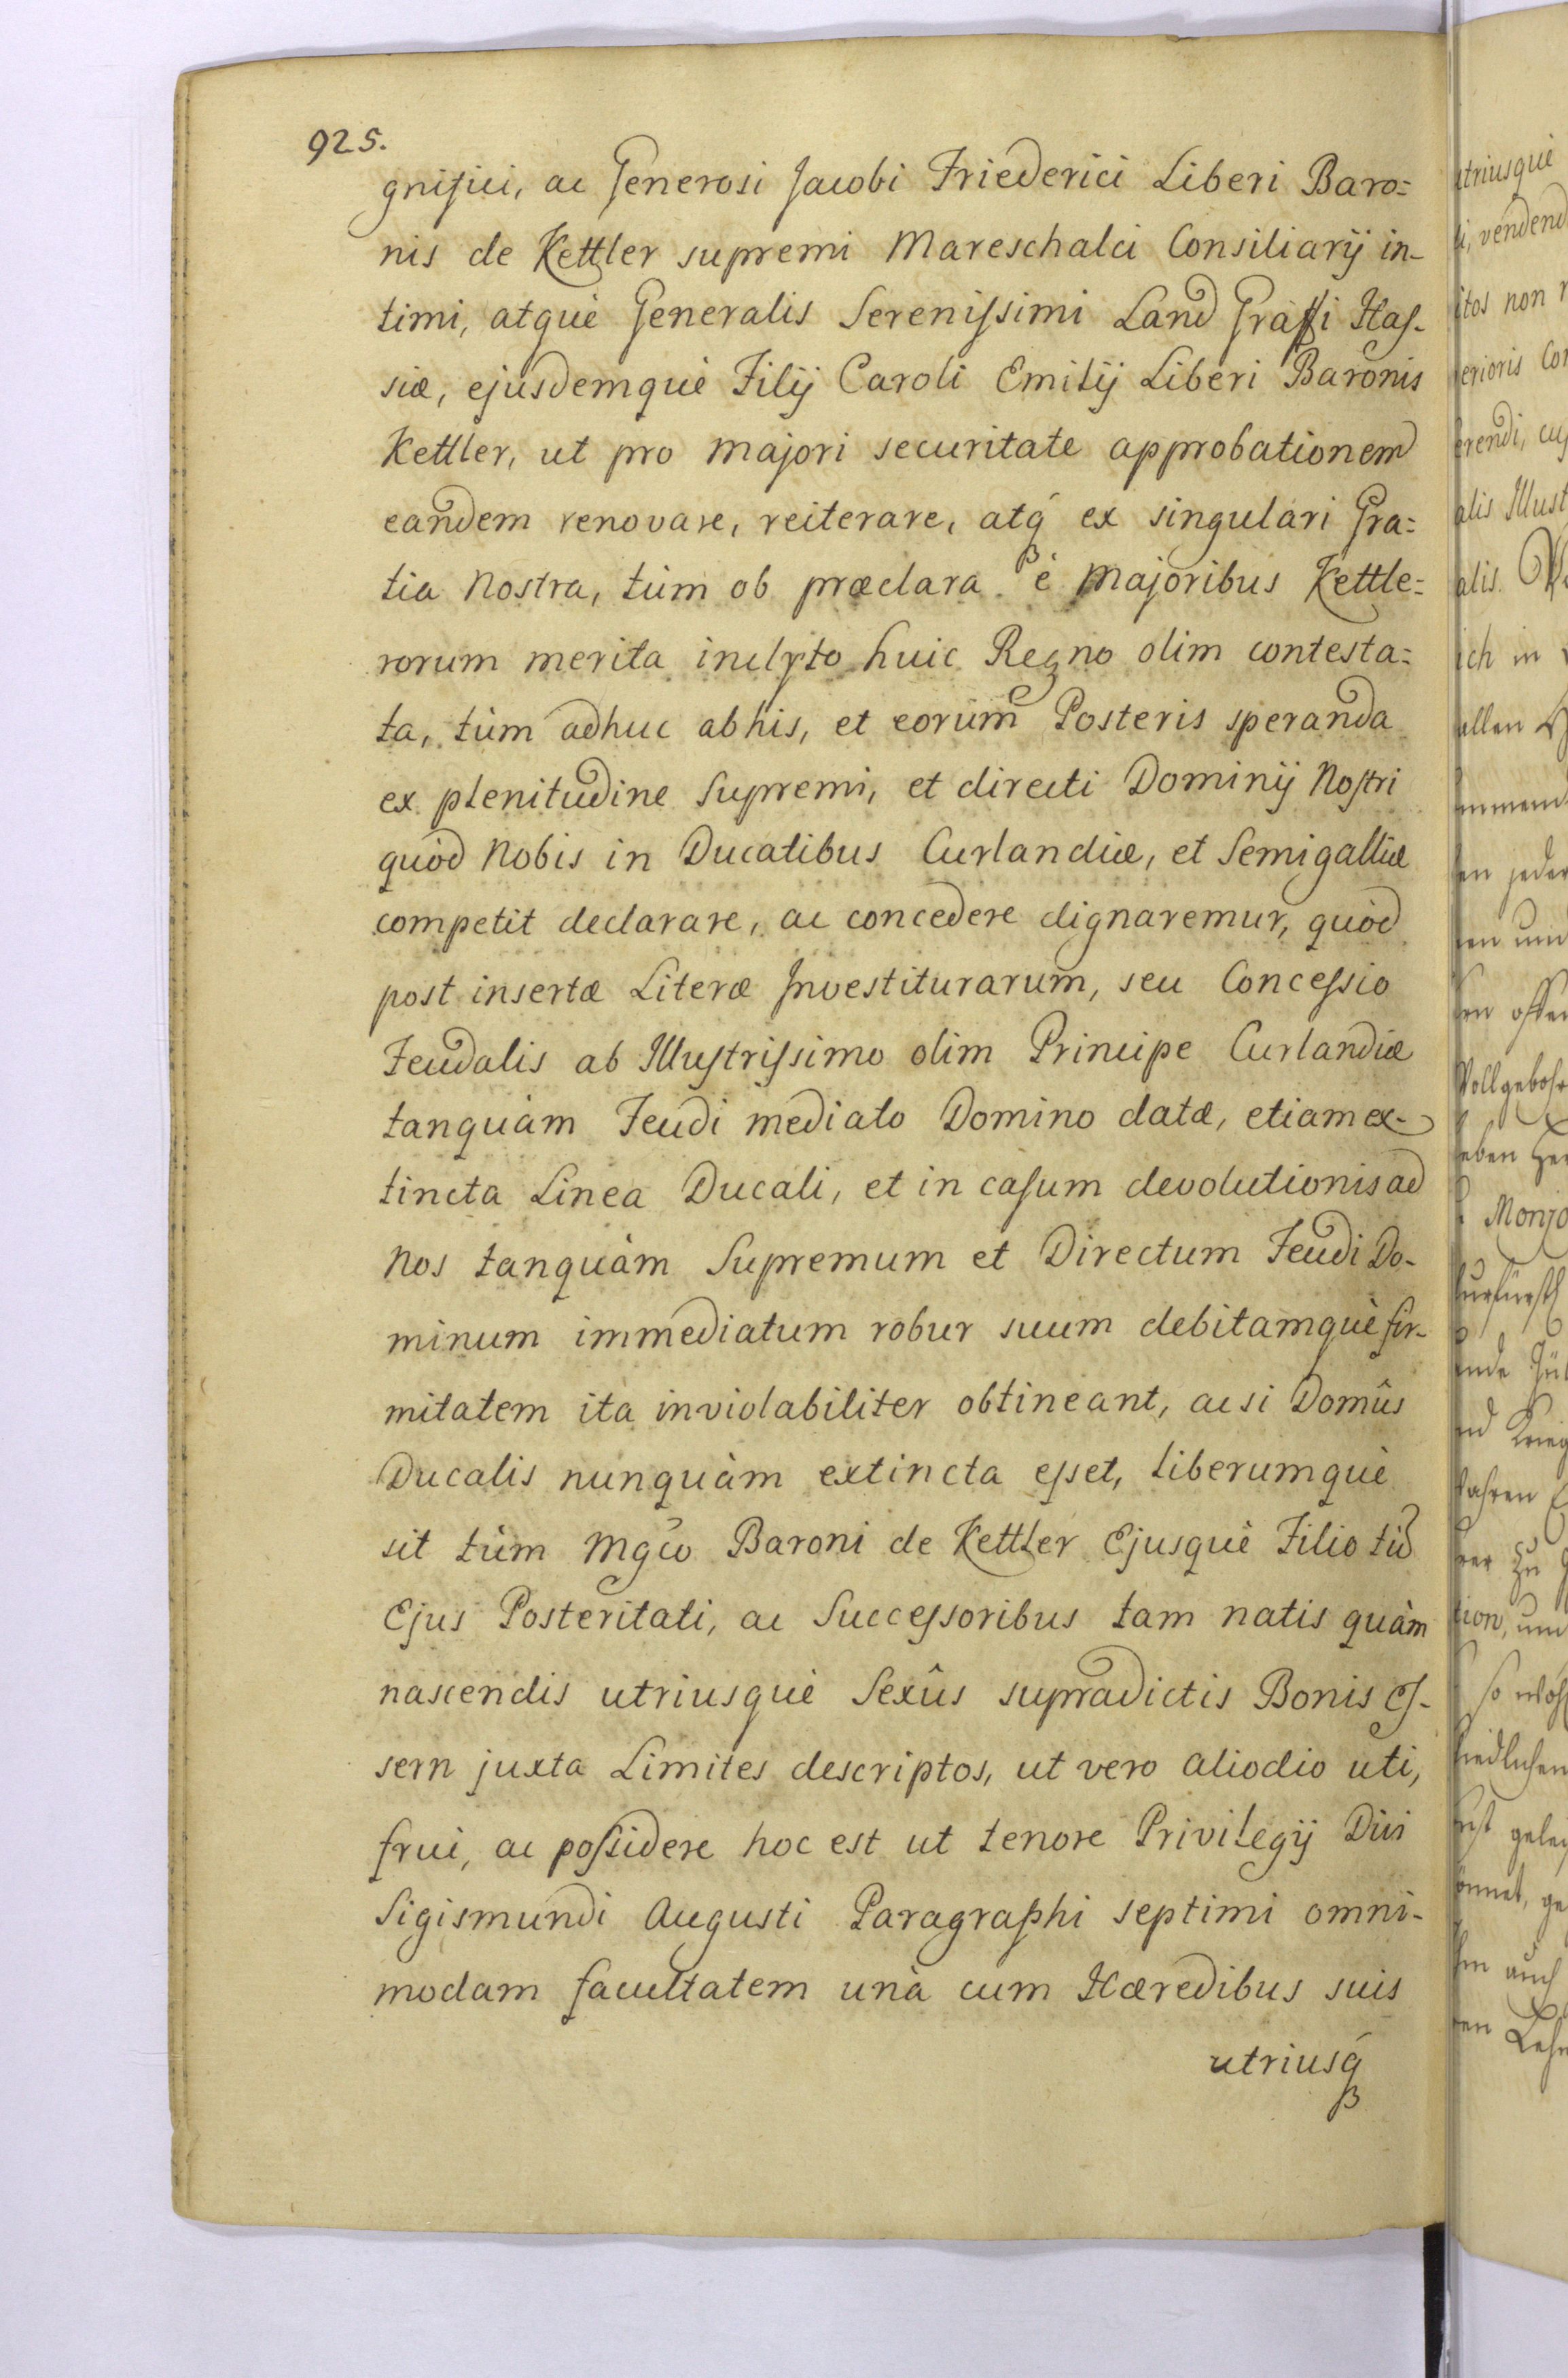 925.
gnifici, ac Generosi Jacobi Friederici Liberi Baro=
nis de Kettler supremi Mareschalci Consiliarij in-
timi, atquè Generalis Serenissimi Land Graffi Has-
siæ, ejusdemquè Filij Caroli Emilij Liberi Baronis
Kettler, ut pro majori securitate approbationem
eandem renovare, reiterare, atq́ ex singulari Gra=
tia Nostra, tùm ob præclara è Majoribus Kettle=
rorum merita inclyto huic Regno olim contesta=
ta, tùm adhuc ab his, et eorum Posteris speranda
ex plenitudine Supremi, et directi Dominij Nostri
quòd Nobis in Ducatibus Curlandiæ, et Semigalliæ
competit declarare, ac concedere dignaremur, quòd
post insertæ Literæ Investiturarum, seu Concessio
Feudalis ab Illustrissimo olim Principe Curlandiæ
tanquàm Feudi mediato Domino datæ, etiam ex-
tincta Linea Ducali, et in casum devolutionis ad
Nos tanquàm Supremum et Directum Feudi Do-
minum immediatum robur suum debitamquè fir-
mitatem ita inviolabiliter obtineant, ac si Domûs
Ducalis nunquàm extincta esset, liberumquè
sit tùm Mgco Baroni de Kettler Ejusquè Filio tũ
Ejus Posteritati, ac Successoribus tam natis quàm
nascendis utriusquè Sexûs supradictis Bonis Es-
sern juxta Limites descriptos, ut vero aliodio uti,
frui, ac possidere hoc est ut tenore Privilegij Divi
Sigismundi Augusti Paragraphi septimi omni-
modam facultatem unà cum Hæredibus suis
utriusq́